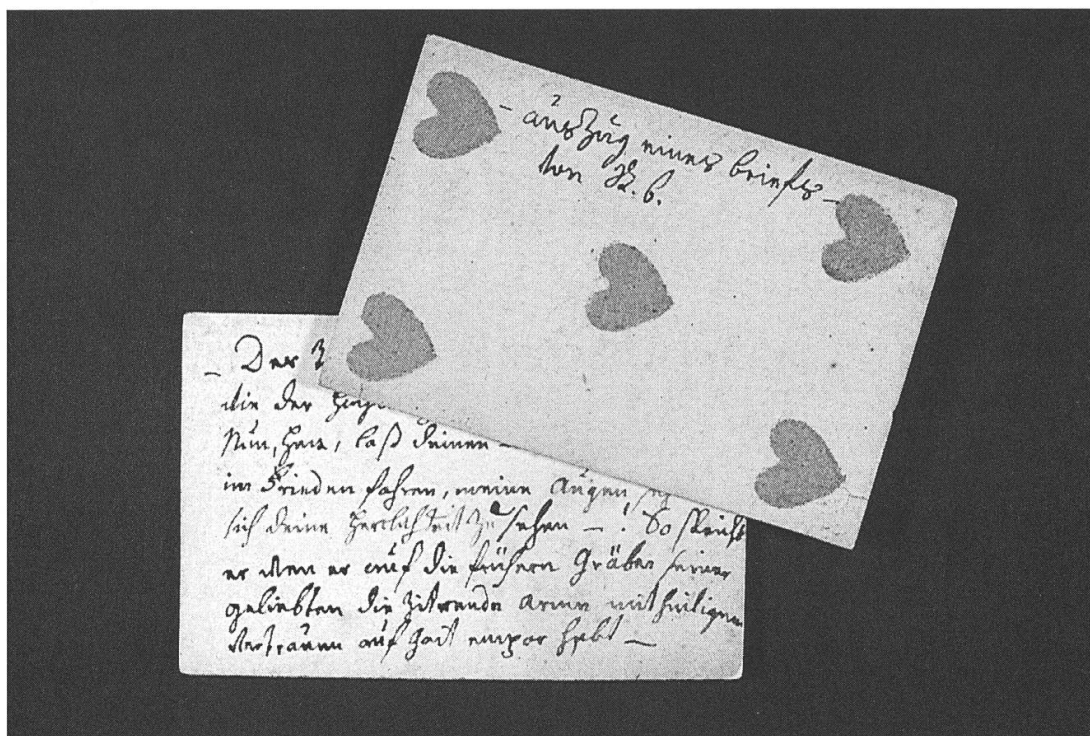 – auszug eines briefs –
von
– Der
wie der
Nun, Herr, laß deinen –
im Frieden fahren, meine Augen
sich deine Herrlichkeit zu sehen – ! So spricht
er wen er auf die frühern Gräber seiner
geliebten die zitrende arme mit heiligem
Vertrauen auf Gott empor hebt –